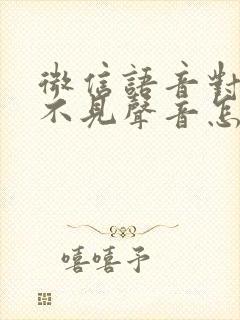 微信語音對
不見聲音怎
嘻嘻予